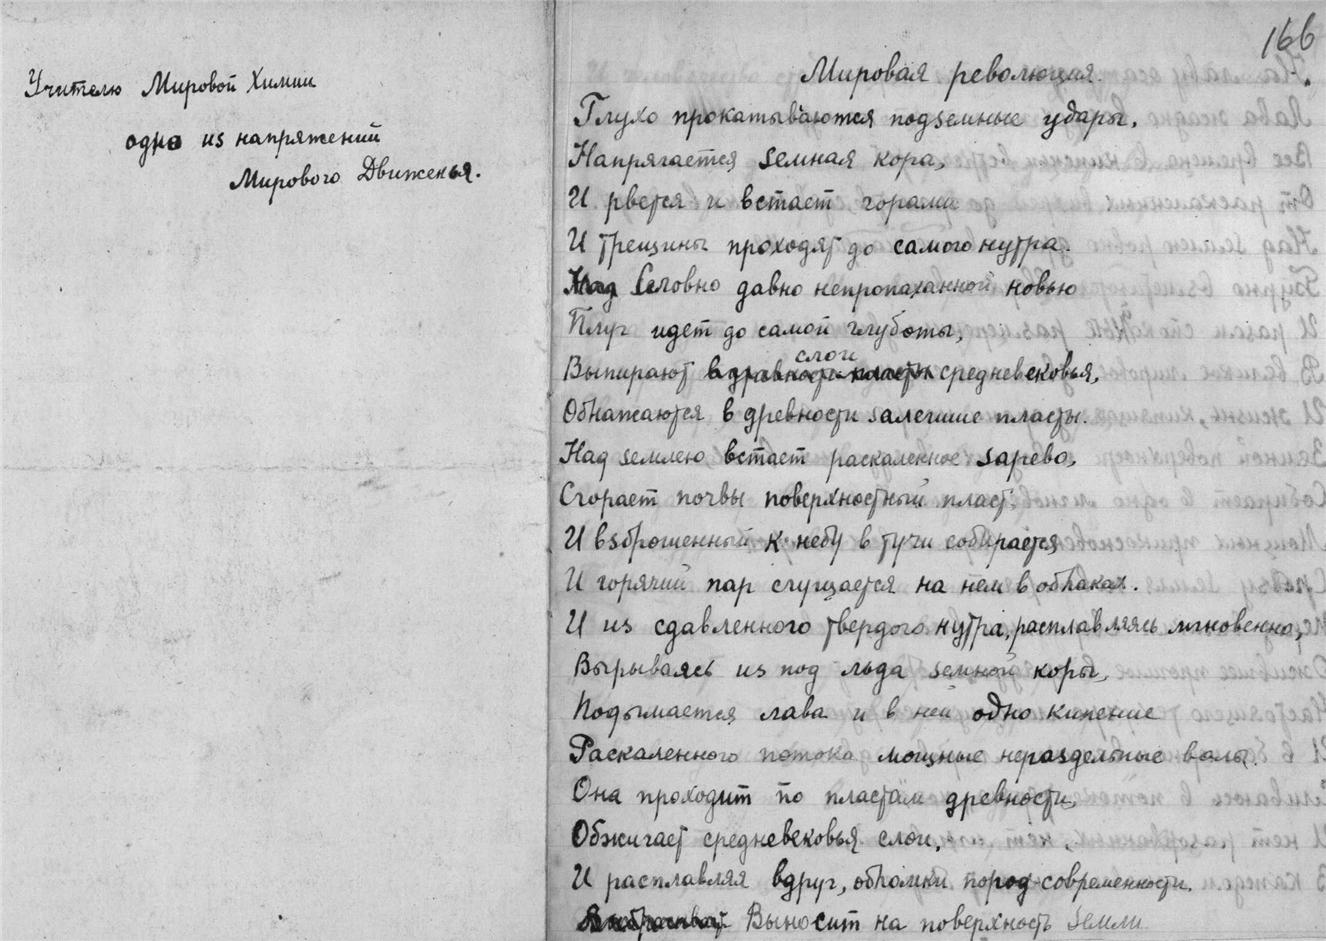 Учителю Мировой Химии
одно из напряжений
Мирового Движенья.
166
Мировая революция.
Глухо прокатываются подземные удары,
Напрягается земная кора,
И рвется и встает горами
И трещины проходят до самого нутра.
Над Словно давно непропаханной новью
Плуг идет до самой глуботы,
слои
Выпирают в древности пласты средневековья,
Обнажаются в древности залегшие пласты.
Над землею встает раскаленное зарево,
Сгорает почвы поверхностный пласт,
И взброшенный к небу в тучи собирается
И горячий пар сгущается на нем в облаках.
И из сдавленного твердого нутра, расплавляясь мгновенно,
Вырываясь из под льда земной коры,
Подымается лава и в ней одно кипение
Раскаленного потока мощные нераздельные валы.
Она проходит по пластам древности,
Обжигает средневековья слои,
И расплавляя вдруг, обломки пород современности.
Выбрасывает Выносит на поверхность земли